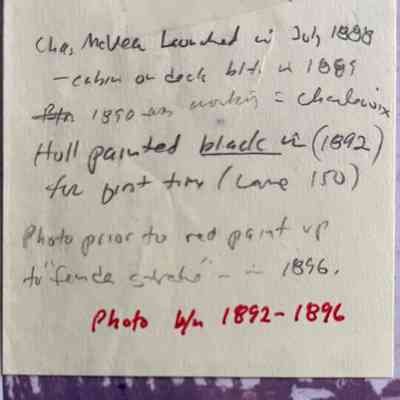 Chas McVea Launched in July 1888
- cabin on deck blt. in 1889
1890 was working = Charlevoix
Hull painted black in (1892)
for first time (Lane 150)
Photo prior to red paint up
to "fender strake" - in 1896.
Photo b/n 1892-1896